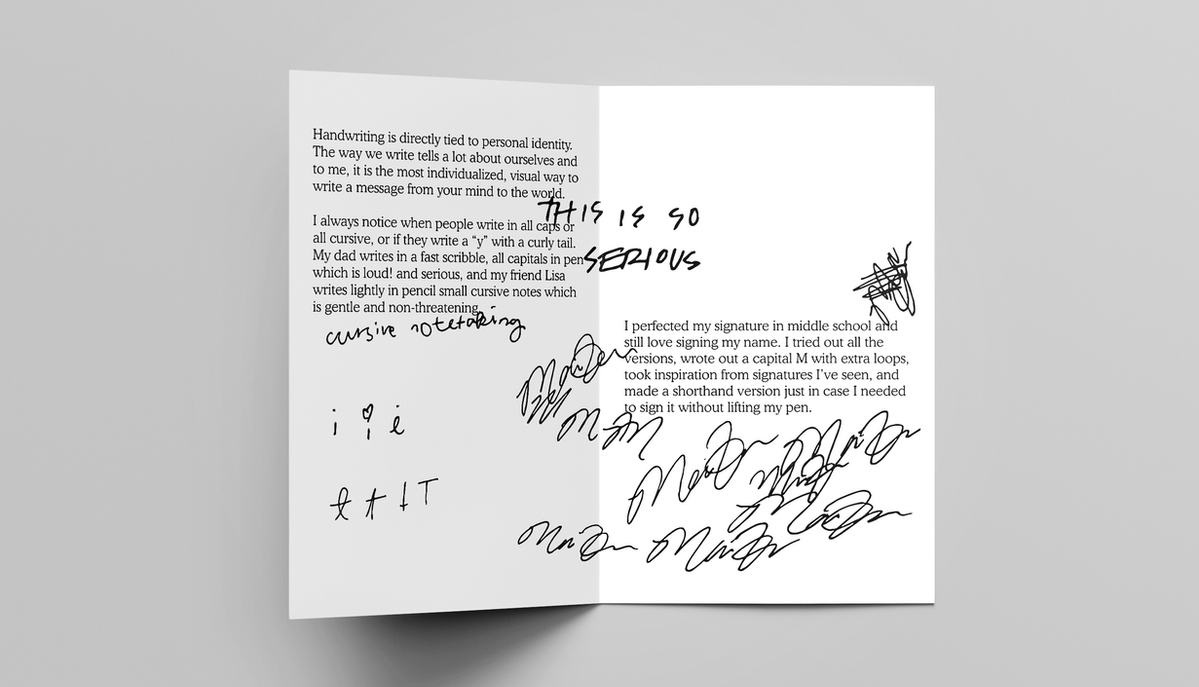 Handwriting is directly tied to personal identity.
The way we write tells a lot about ourselves and
to me, it is the most individualized, visual way to
write a message from your mind to the world.
I always notice when people write in all caps or
all cursive, or if they write a “y” with a curly tail.
My dad writes in a fast scribble, all capitals in pen
which is loud! and serious, and my friend Lisa
writes lightly in pencil small cursive notes which
is gentle and non-threatening.
cursive notetaking
i i i
t t t T
THIS IS SO
SERIOUS
I perfected my signature in middle school and
still love signing my name. I tried out all the
versions, wrote out a capital M with extra loops,
took inspiration from signatures I’ve seen, and
made a shorthand version just in case I needed
to sign it without lifting my pen.